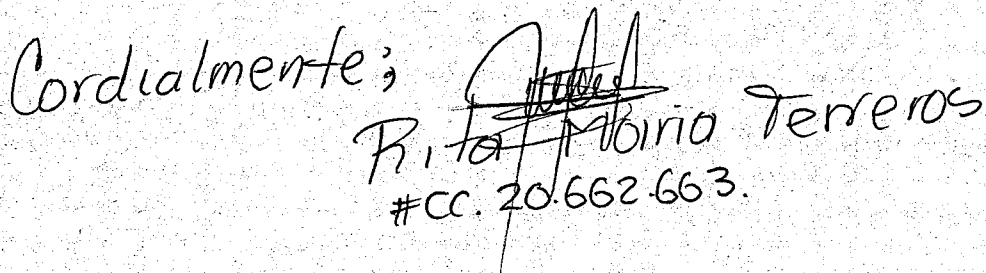 Cordialmente;
Rita Maria Terreros
#CC. 20.662.663.